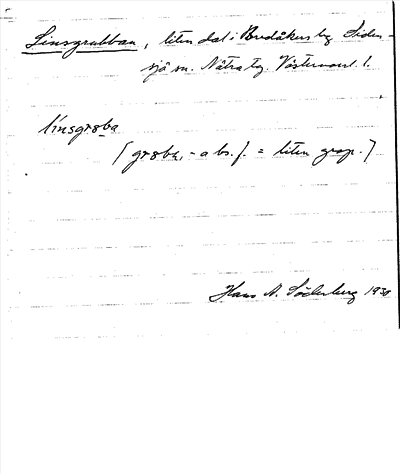 Linsgrubban, liten dal i Bredåkers by Siden-
sjö sn. Nätra tg. Västernorrl. l.
línsgrøba
[grøba, -a bs. f. = liten grop.]
Hans A. Söderberg 1930